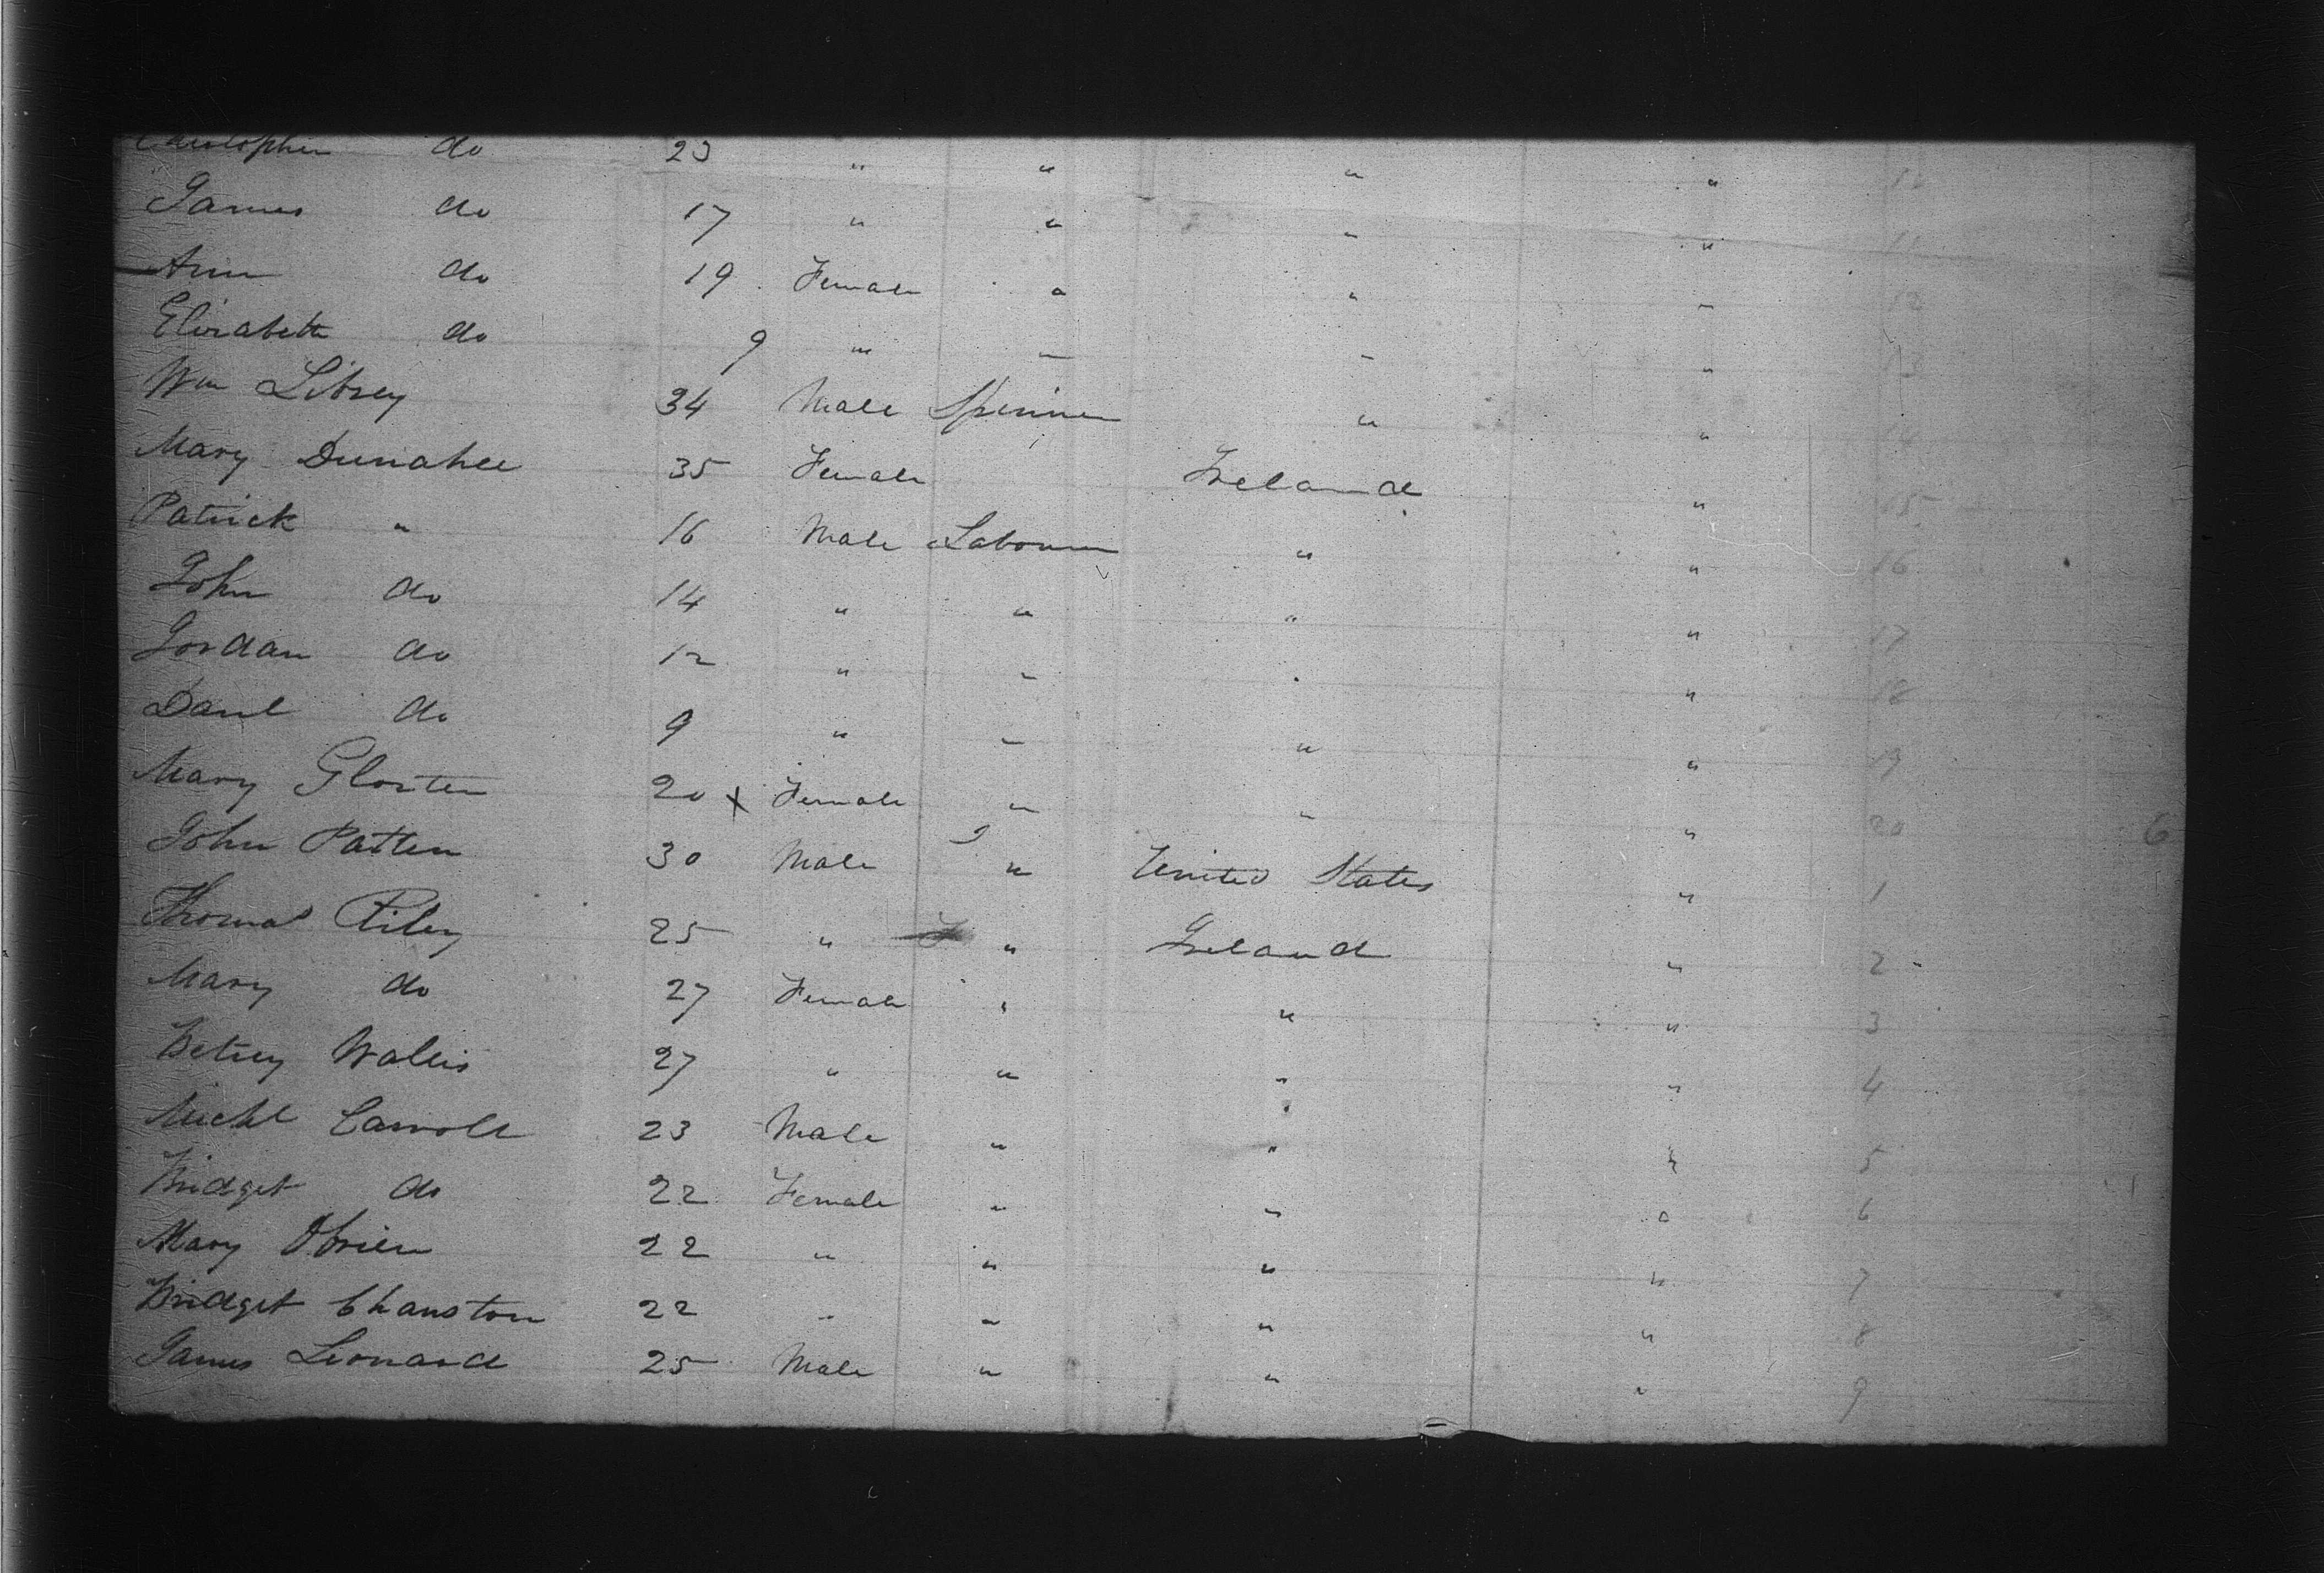 Christopher do 23 " " " " 10
James do 17 " " " " 11
Ann do 19 Female " " " 12
Elizabeth do 9 " " " " 13
Wm Librey 34 Male Spinner " " 14
Mary Dunahee 35 Female Ireland " 15
Patrick " 16 Male Labourer " " 16
John do 14 " " " " 17
Jordan do 12 " " " " 18
Danl do 9 " " " " 19
Mary Gloster 20 x Female " " " 20 6
John Patten 30 Male " United States " 1
Thomas Riley 25 " " Ireland " 2
Mary do 27 Female " " " 3
Betsey Wallis 27 " " " " 4
Michl Carroll 23 Male " " " 5
Bridget do 22 Female " " " 6
Mary Obrien 22 " " " " 7
Bridget Chanston 22 " " " " 8
James Leonard 25 Male " " " 9